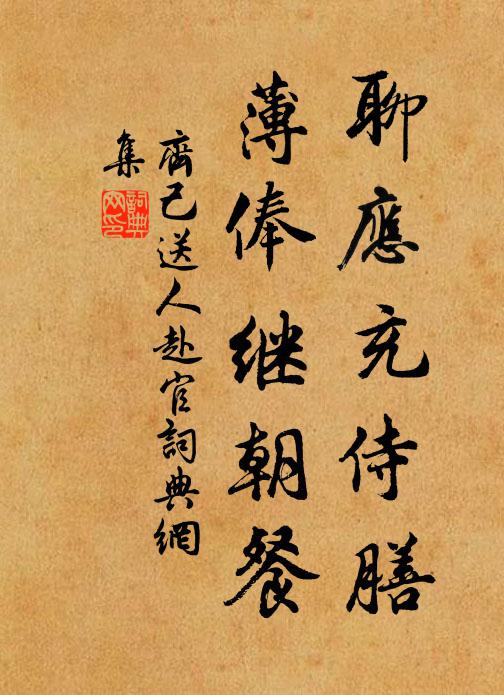 聊應充侍膳
薄俸继朝餐
齊己送人赴官詞典網
集
詞典
网印